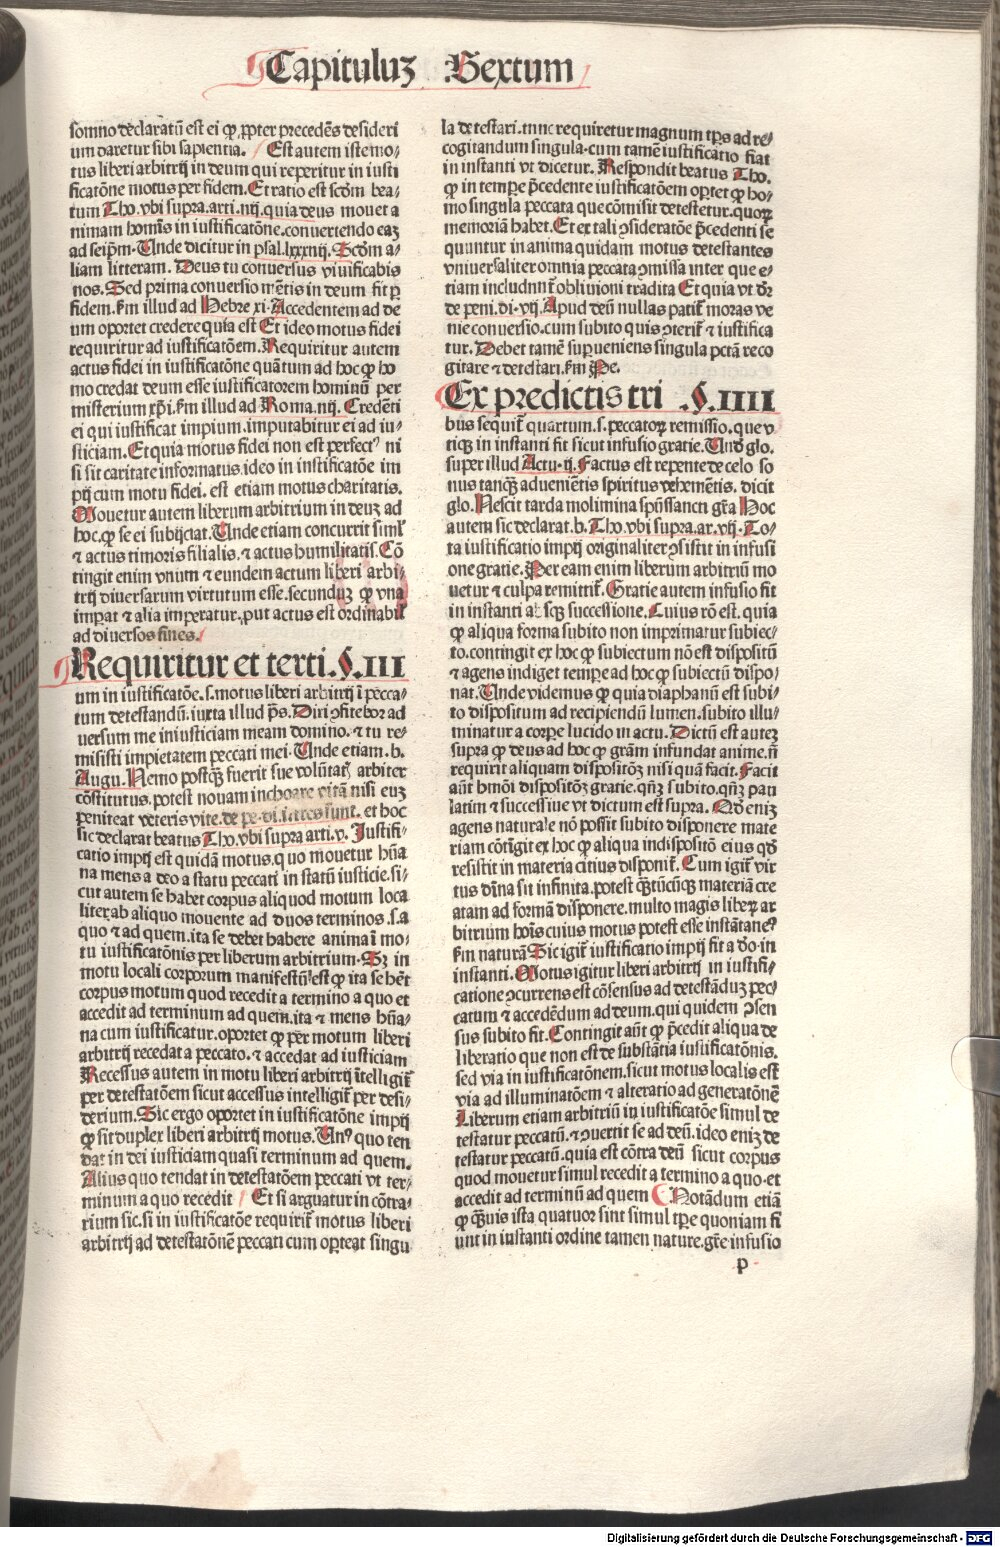 Capituluz Sextum
somno declaratū est ei ꝙ ꝓpter precedēs desideri
um daretur sibi sapientia. Est autem iste mo/
tus liberi arbitrij in deum qui reperitur in iusti
ficatōne motus per fidem. Et ratio est scdm bea/
tum Tho. vbi supra. arti. iiij. quia deus mouet a
nimam homīs in iustificatōne. conuertendo eaz
ad seipm̄. Unde dicitur in psal. lxxxiiij. Scdm a/
liam litteram. Deus tu conuersus viuificabis
nos. Sed prima conuersio mētis in deum fit ꝑ
fidem. ẜm illud ad Hebre xi. Accedentem ad de
um oportet credere quia est Et ideo motus fidei
requiritur ad iustificatōem. Requiritur autem
actus fidei in iustificatōne quātum ad hoc ꝙ ho
mo credat deum esse iustificatorem hominū per
misterium xp̄i. ẜm illud ad Roma. iiij. Credēti
ei qui iustificat impium. imputabitur ei ad iu/
sticiam. Et quia motus fidei non est perfectꝰ ni
si sit caritate informatus. ideo in iustificatōe im
pij cum motu fidei. est etiam motus charitatis.
Mouetur autem liberum arbitrium in deuz ad
hoc. ꝙ se ei subijciat. Unde etiam concurrit siml̄
⁊ actus timoris filialis. ⁊ actus humilitatis. Cō
tingit enim vnum ⁊ eundem actum liberi arbi/
trij diuersarum virtutum esse. secunduz ꝙ vna
impat ⁊ alia imperatur. ꝓut actus est ordinabil̄
ad diuersos fines.
Requiritur et terti. §. III
um in iustificatōe. s. motus liberi arbitrij ī pecca/
tum detestandū. iuxta illud ps̄. Dixi ꝯfitebor ad
uersum me iniusticiam meam domino. ⁊ tu re/
misisti impietatem peccati mei. Unde etiam. b.
Augu. Nemo postqȝ fuerit sue volūtatꝭ arbiter
cōstitutus. potest nouam inchoare vitā nisi euz
peniteat veteris vite. de pe. di. i. tres sunt. et hoc
sic declarat beatus Tho. vbi supra arti. v. Justifi/
catio impij est quidā motus. quo mouetur hūa
na mens a deo a statu peccati in statū iusticie. si/
cut autem se habet corpus aliquod motum loca
liter. ab aliquo mouente ad duos terminos. s. a
quo ⁊ ad quem. ita se debet habere anima ī mo/
tu iustificatōnis per liberum arbitrium. Sȝ in
motu locali corporum manifestū est ꝙ ita se hēt
corpus motum quod recedit a termino a quo et
accedit ad terminum ad quem. ita ⁊ mens hūa/
na cum iustificatur. oportet ꝙ per motum liberi
arbitrij recedat a peccato. ⁊ accedat ad iusticiam
Recessus autem in motu liberi arbitrij ītelligit᷑
per detestatōem sicut accessus intelligit᷑ per desi/
derium. Sic ergo oportet in iustificatōne impij
ꝙ sit duplex liberi arbitrij motus. Unꝰ quo ten
dat in dei iusticiam quasi terminum ad quem.
Alius quo tendat in detestatōem peccati vt ter/
minum a quo recedit Et si arguatur in cōtra/
rium sic. si in iustificatōe requirit᷑ motus liberi
arbitrij ad detestatōnē peccati cum oꝑteat singu
la detestari. tunc requiretur magnum tp̄s ad re/
cogitandum singula. cum tamē iustificatio fiat
in instanti vt dicetur. Respondit beatus Tho.
ꝙ in tempe p̄cedente iustificatōem oꝑtet ꝙ ho/
mo singula peccata que cōmisit detestetur. quoꝝ
memoriā habet. Et ex tali ꝯsideratōe p̄cedenti se
quuntur in anima quidam motus detestantes
vniuersaliter omnia peccata ꝯmissa inter que e/
tiam includunt᷑ obliuioni tradita Et quia vt dr̄
de peni. di. vij. Apud deū nullas patit᷑ moras ve
nie conuersio. cum subito quis ꝯterit᷑ ⁊ iustifica
tur. Debet tamē suꝑueniens singula pctā reco
gitare ⁊ detestari. ẜm Pe.
Ex predictis tri §. IIII
bus sequit᷑ quartum. s. peccatoꝝ remissio. que v
tiqȝ in instanti fit sicut infusio gratie. Und glo.
super illud Actu. ij. Factus est repente de celo so
nus tanqȝ aduenietis spiritus vehemētis. dicit
glo. Nescit tarda molimina spūssancti gr̄a Hoc
autem sic declarat. b. Tho. vbi supra. ar. vij. To/
ta iustificatio impij originaliter ꝯsistit in infusi
one gratie. Per eam enim liberum arbitriū mo
uetur ⁊ culpa remittit᷑. Gratie autem infusio fit
in instanti absqȝ successione. Cuius rō est. quia
ꝙ aliqua forma subito non imprimatur subiec/
to. contingit ex hoc ꝙ subiectum nō est dispositū
⁊ agens indiget tempe ad hoc ꝙ subiectū dispo/
nat. Unde videmus ꝙ quia diaphanū est subi/
to dispositum ad recipiendū lumen. subito illu/
minatur a corꝑe lucido in actu. Dictū est autez
supra ꝙ deus ad hoc ꝙ grām infundat anime. nō
requirit aliquam dispositōȝ nisi quā facit. Facit
aūt hmōi dispositōȝ gratie. qn̄ȝ subito. qn̄ȝ pau
latim ⁊ successiue vt dictum est supra. Qd enīȝ
agens naturale nō possit subito disponere mate
riam cōtīgit ex hoc ꝙ aliqua indispositō eius qd̄
resistit in materia citius disponit᷑. Cum igit᷑ vir
tus diīna sit infinita. potest qȝtūcūqȝ materiā cre
atam ad formā disponere. multo magis liberꝝ ar
bitrium hoīs cuius motus potest esse instātaneꝰ
ẜm naturā Sic igit᷑ iustificatio impij fit a deo. in
instanti. Motus igitur liberi arbitrij in iustifi/
catione ꝯcurrens est cōsensus ad detestāduz pec/
catum ⁊ accedēdum ad deum. qui quidem ꝯsen
sus subito fit. Contingit aūt ꝙ p̄cedit aliqua de
liberatio que non est de substātia iustificatōnis.
sed via in iustificatōnem. sicut motus localis est
via ad illuminatōem ⁊ alteratio ad generatōnē
Liberum etiam arbitriū in iustificatōe simul de
testatur peccatū. ⁊ ꝯuertit se ad deū. ideo eniz de
testatur peccatū. quia est cōtra deū sicut corpus
quod mouetur simul recedit a termino a quo. et
accedit ad terminū ad quem Notādum etiā
ꝙ qȝuis ista quatuor sint simul tꝑe quoniam fi
unt in instanti ordine tamen nature. gr̄e infusio
p
Digitalisierung gefördert durch die Deutsche Forschungsgemeinschaft - DFG